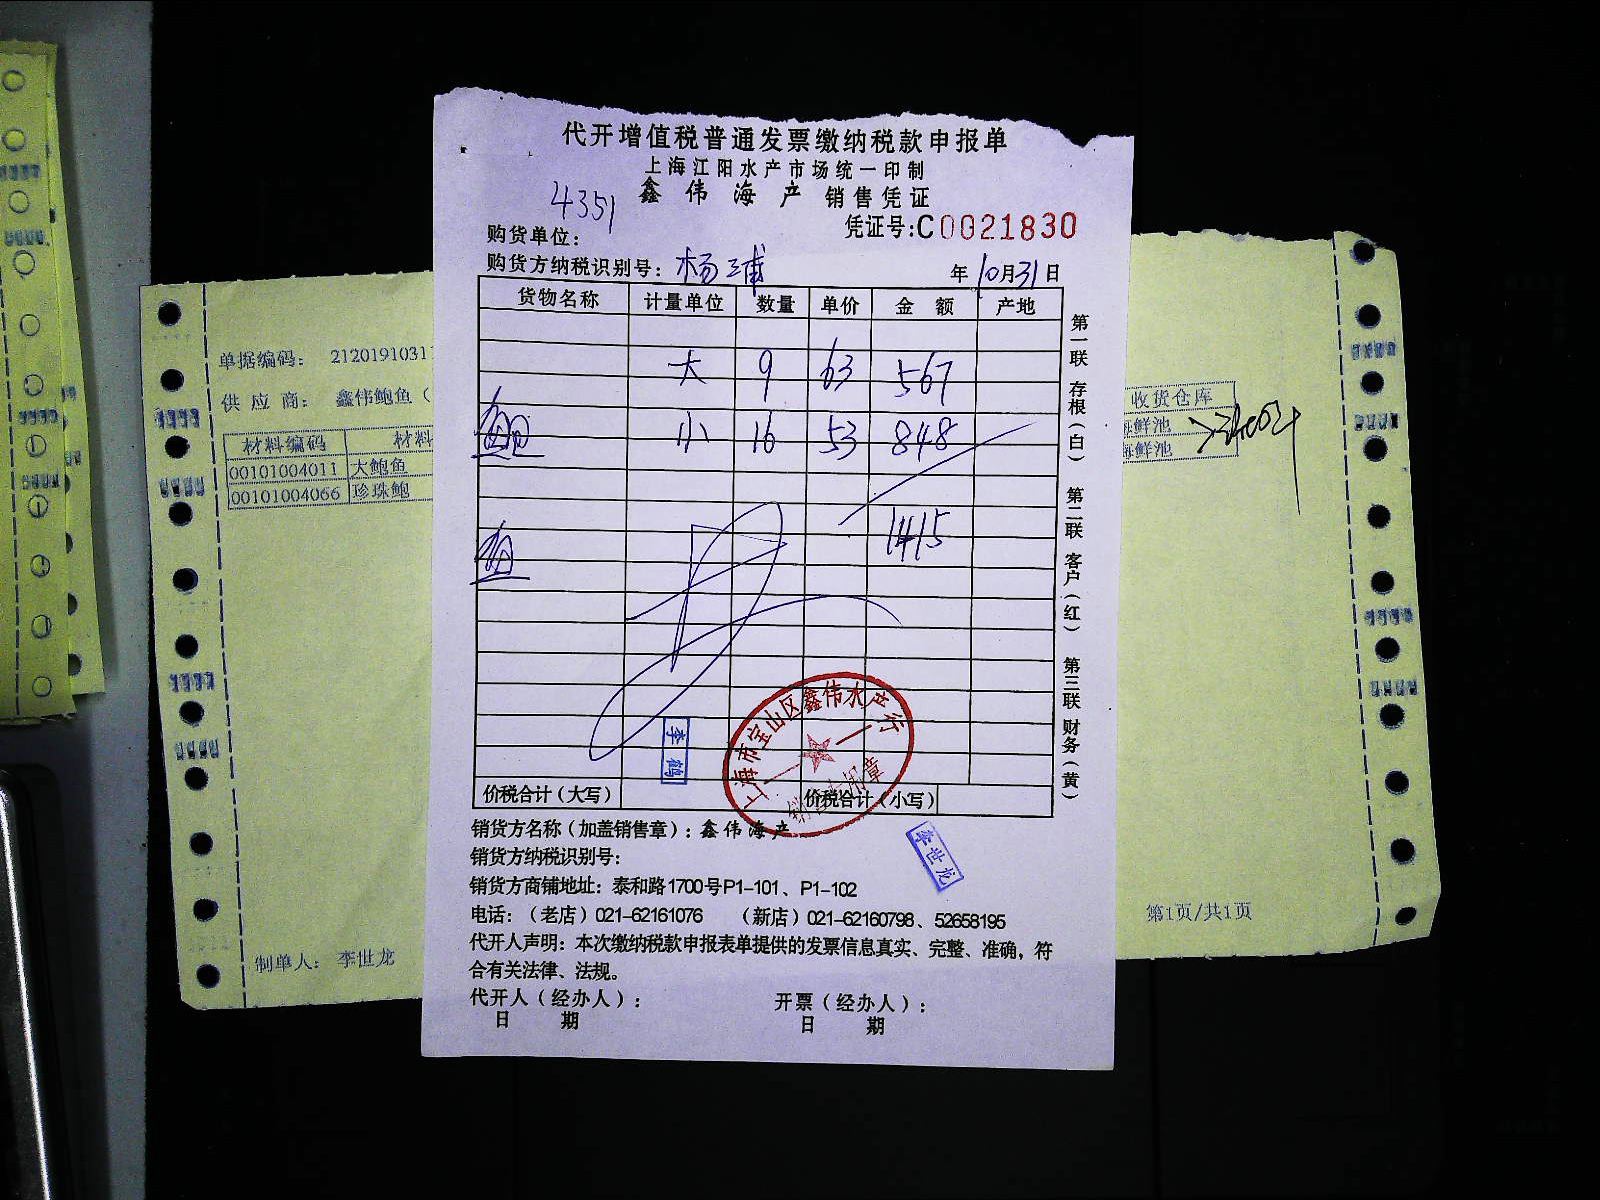 代开增值税普通发票缴纳税款申报单
上海江阳水产市场统一印制
鑫伟海产 销售凭证
4351
凭证号:C0021830
购货单位：
购货方纳税识别号：杨浦 年10月31日
货物名称 计量单位 数量 单价 金额 产地
大 9 63 567
小 16 53 848
1415
价税合计（大写） 价税合计（小写）
第一联 存根（白） 第二联 客户（红） 第三联 财务（黄）
李鹤
上海市宝山区鑫伟水产行
李世龙
销货方名称（加盖销售章）：鑫伟海产
销货方纳税识别号：
销货方商铺地址：泰和路1700号P1-101、P1-102
电话：（老店）021-62161076 （新店）021-62160798、52658195
代开人声明：本次缴纳税款申报表单提供的发票信息真实、完整、准确，符
合有关法律、法规。
代开人（经办人）： 开票（经办人）：
日 期 日 期
单据编码： 2120191031
供应商： 鑫伟鲍鱼（
材料编码 材料
00101004011 大鲍鱼
00101004066 珍珠鲍
制单人： 李世龙
收货仓库
海鲜池
海鲜池
第1页/共1页